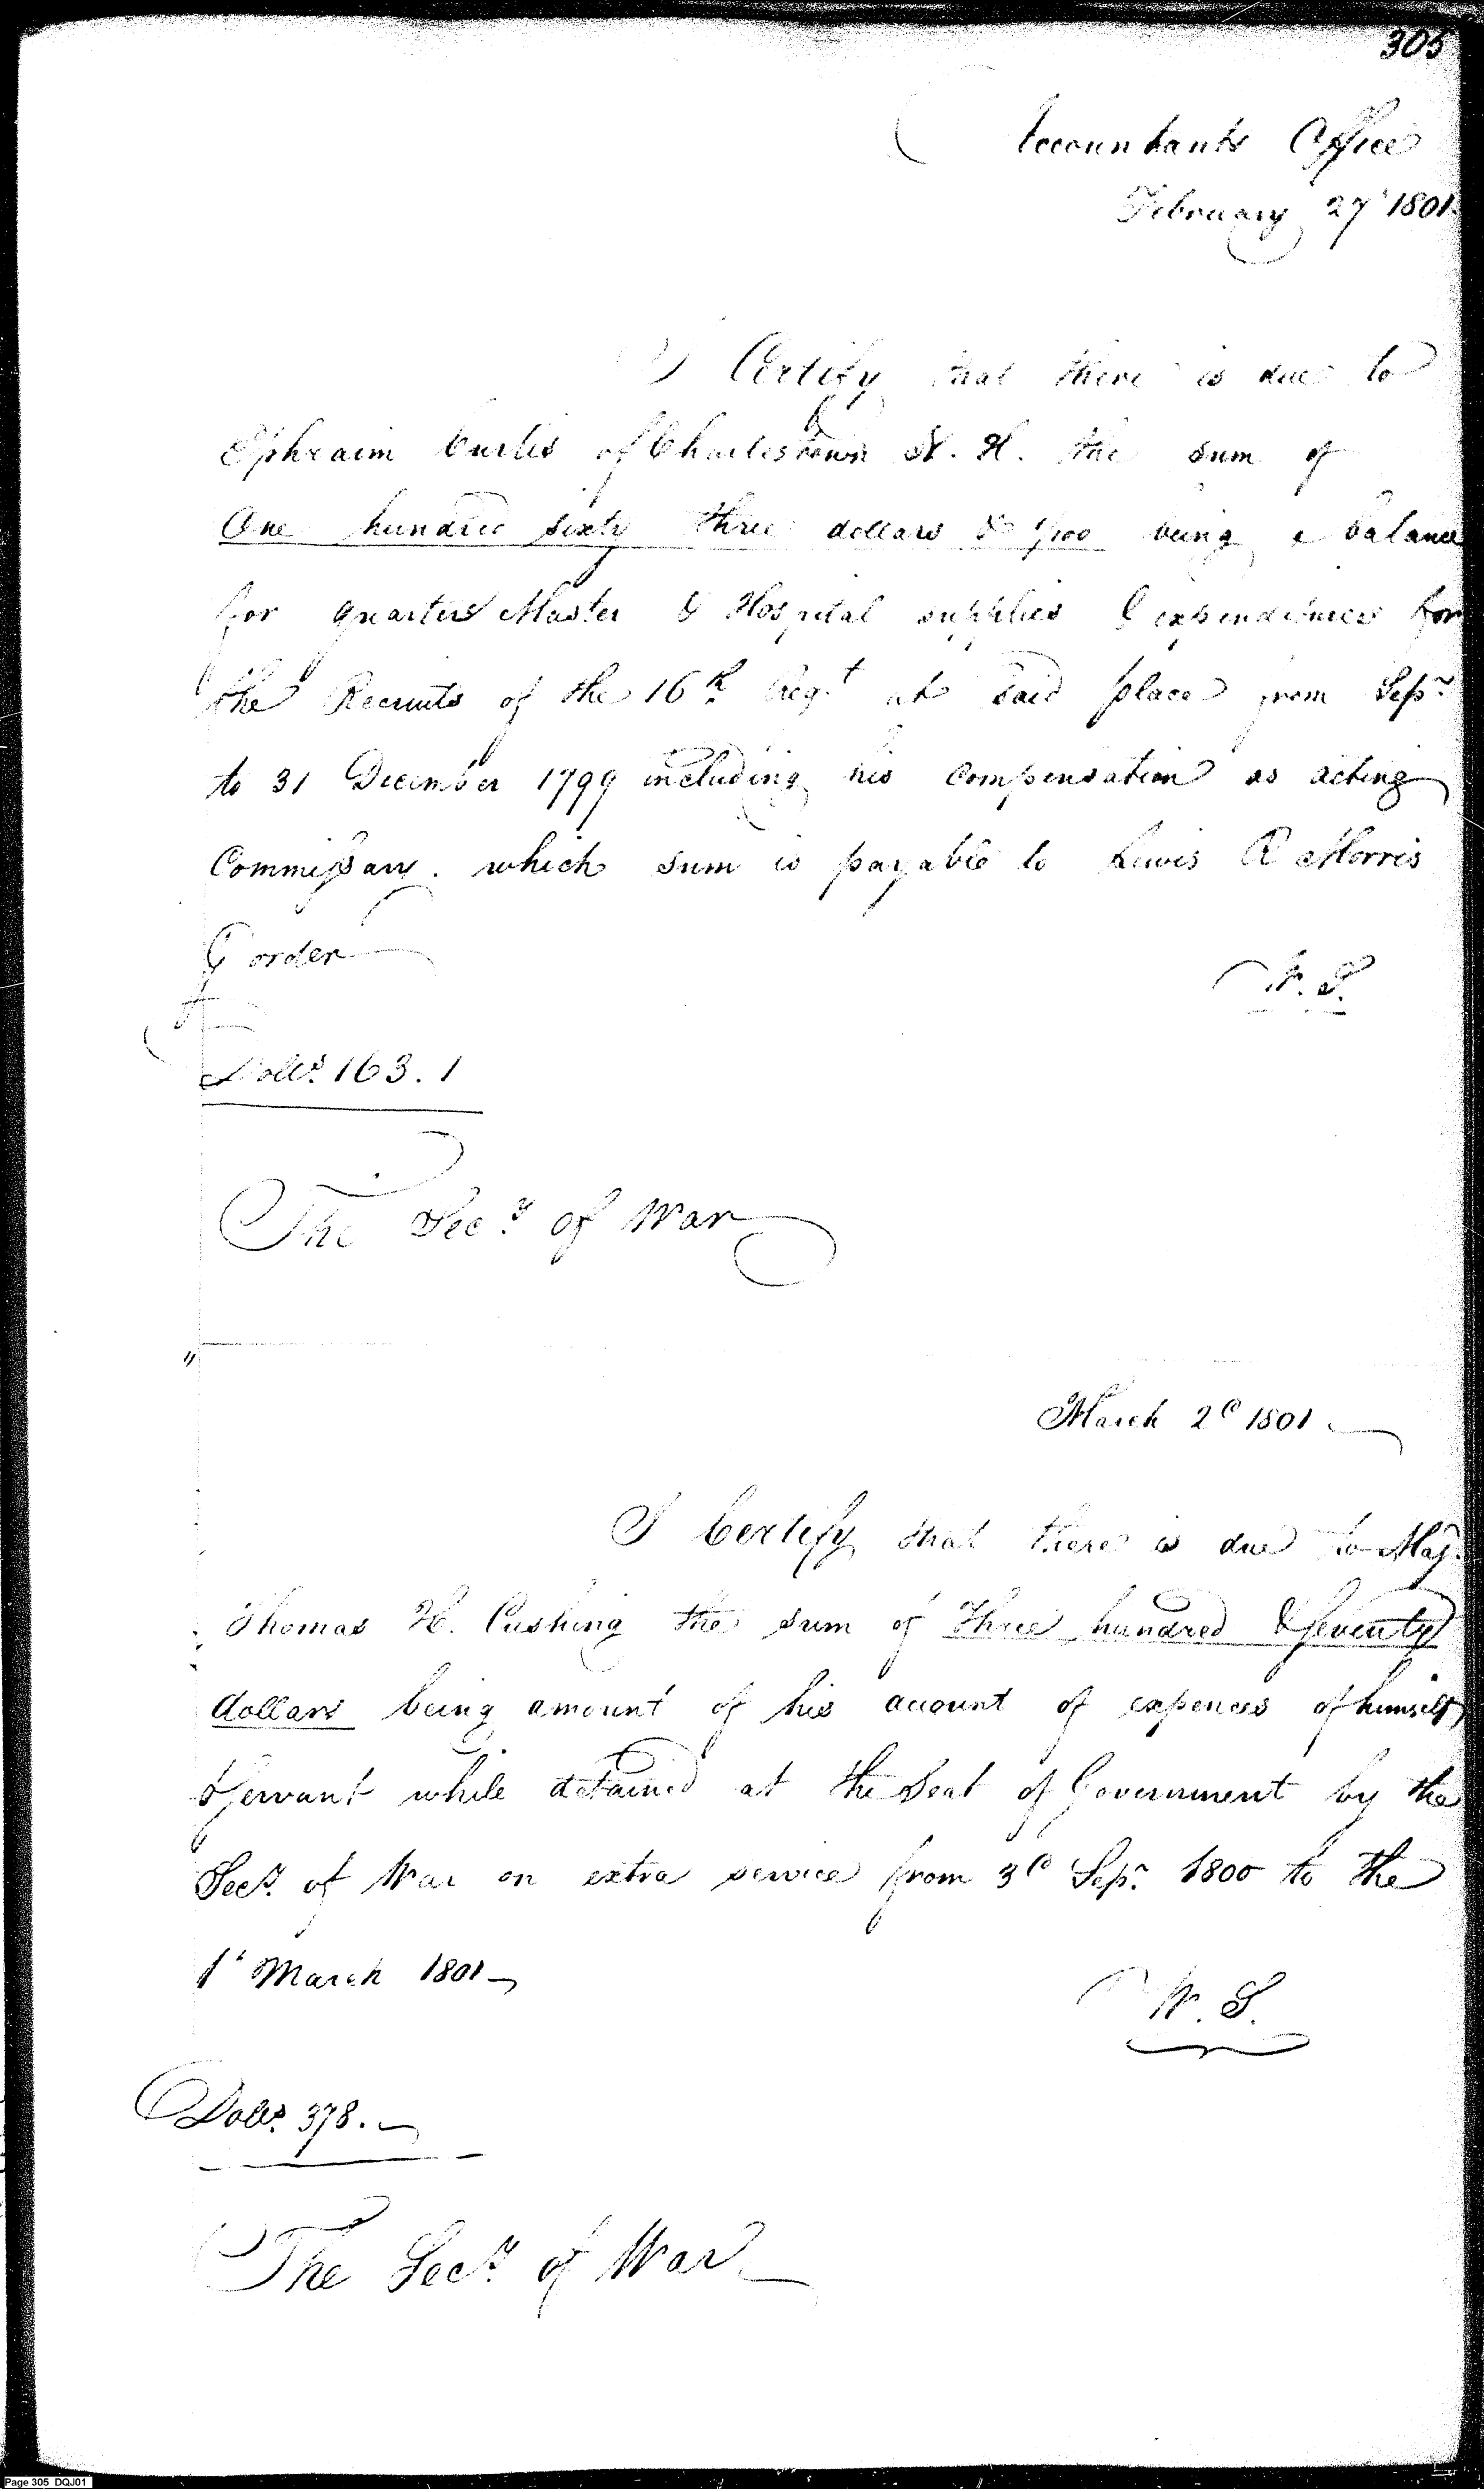 305
Accountants Office
February 27 1801.
I Certify that there is due to
Ephraim Curtis of Charlestown N. H. the sum of
One hundred sixty three dollars & 1/100 being a balance
for quarter Master & Hospital supplies & expenditures for
the Recruits of the 16th Regt at said place from Sepr
to 31 December 1799 including his Compensation as acting
Commissary. which sum is payable to Lewis R Morris
or order
W. S.
Dolls. 163.1
The Secy of War
"
March 2d 1801
I Certify that there is due to Maj.
Thomas H. Cushing the sum of Three hundred & seventy
dollars being amount of his account of expences of himself
& servant while detained at the Seat of Government by the
Secy. of War on extra service from 3d Sepr. 1800 to the
1t March 1801
W. S.
Dolls. 378.
The Secy. of War
Page 305 DQJ01